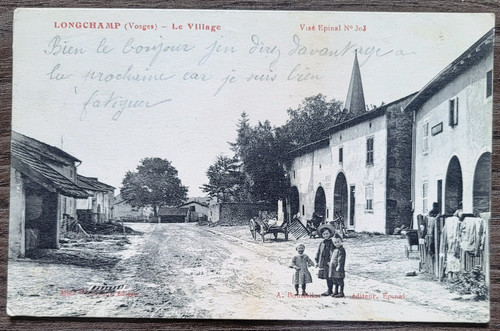 LONGCHAMP (Vosges) – Le Village
Visé Epinal Nº 303
Bien le bonjour j'en direz davantage a
la prochaine car je suis bien
fatiguer
A. éditeur, Epinal